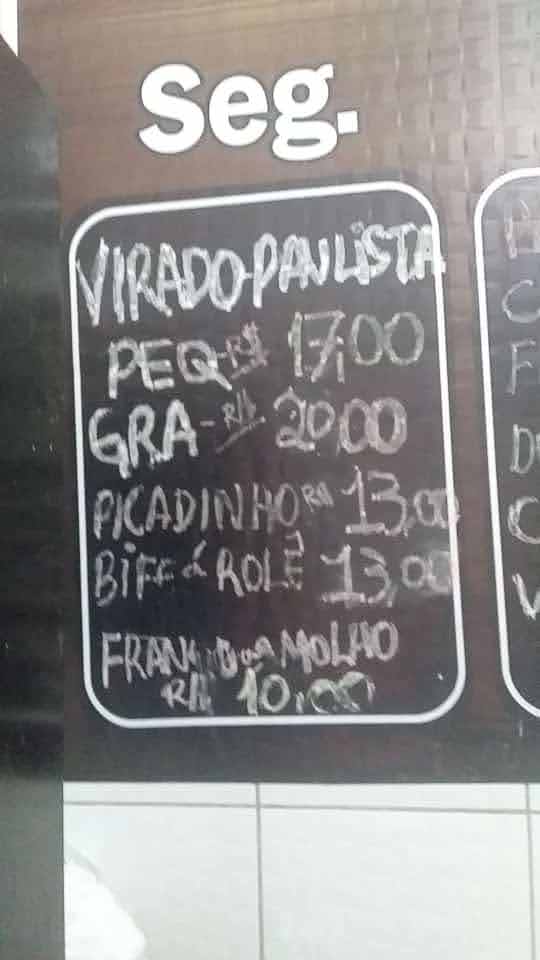 Seg.
VIRADO PAULISTA
PEQ-R$ 17,00
GRA-R$ 20,00
PICADINHO R$ 13,00
BIFE á ROLÊ 13,00
MOLHO
R$ 10,00